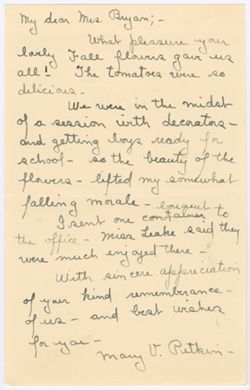 My dear Mrs. Bryan;-
What pleasure your
lovely Fall flowers gave us
all! The tomatoes were so
delicious.-
We were in the midst
of a session with decorators-
and getting boys ready for
school - so the beauty of the
flowers - lifted my somewhat
falling morale - bouquet
I sent one container to
the office - Miss Leake said they
were much enjoyed there -
With sincere appreciation
of your kind remembrance-
of us - and best wishes
for you -
Mary V.